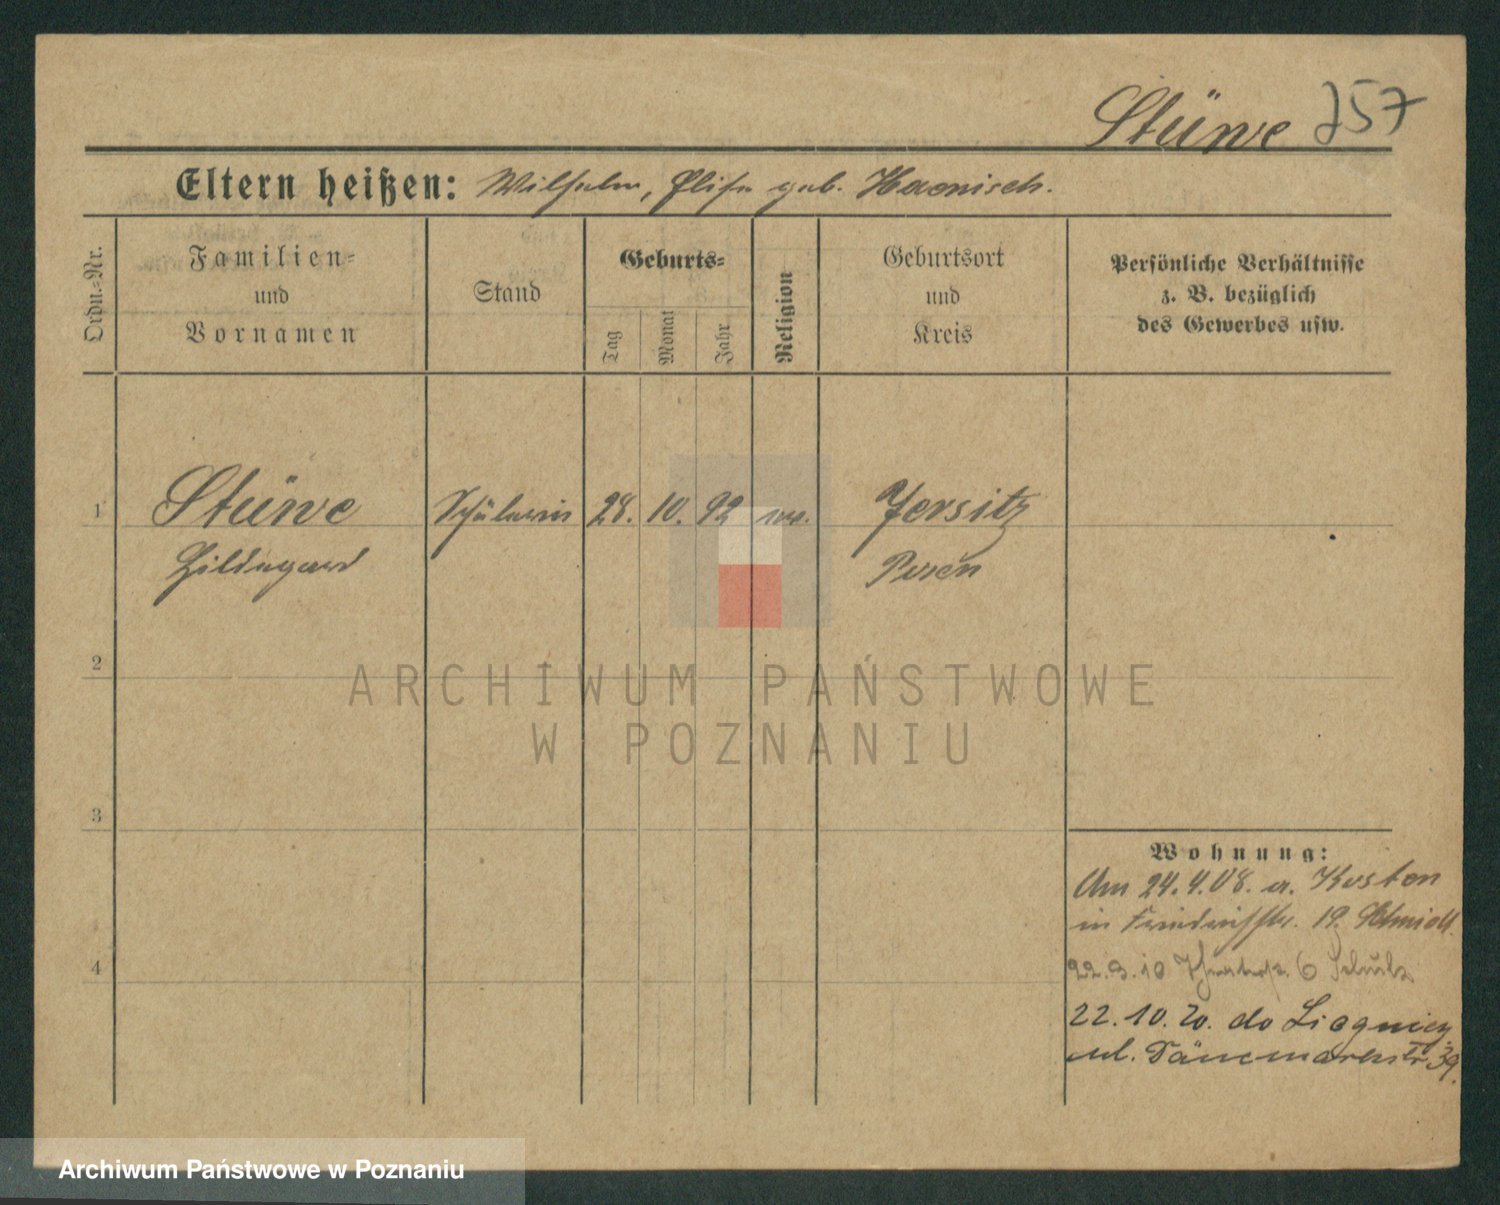 Stüwe 757
Eltern heißen: Wilhelm, Elise geb. Haenisch.
Ordn.-Nr.
Familien-
und
Vornamen
Stand
Geburts-
Tag
Monat
Jahr
Religion
Geburtsort
und
Kreis
Persönliche Verhältnisse
z. B. bezüglich
des Gewerbes usw.
1 Stüwe Schülerin 28. 10. 92 ev. Jersitz
Hildegard Posen
2
ARCHIWUM PAŃSTWOWE
W POZNANIU
3
Wohnung:
Am 24.4.08. a. Kosten
in Friedrichstr. 19. Schmidt.
4
22.3.10 6 Schulz
22.10.20. do Liegnicy
ul. Dänemarkstr. 39.
Archiwum Państwowe w Poznaniu